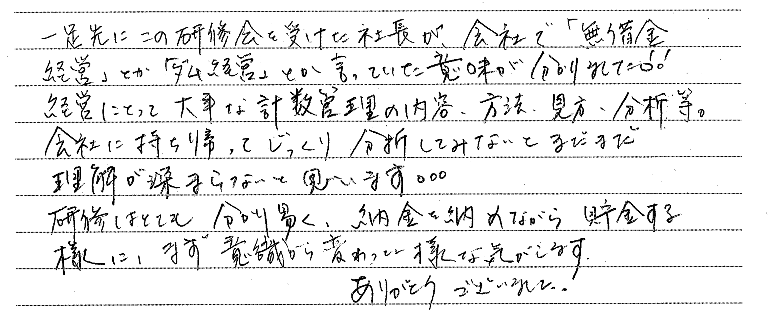 一足先にこの研修会を受けた社長が、会社で「無借金
経営」とか「ダム経営」とか言っていた意味が分かりました!!
経営にとって大事な計数管理の内容、方法、見方、分析等。
会社に持ち帰ってじっくり分析してみないとまだまだ
理解が深まらないと思います。。。
研修はとても分かり易く、納金を納めながら貯金する
様に、まず意識から変わってい様な気がします。
ありがとうございました。!